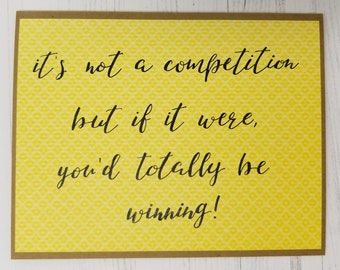 it's not a competition
but if it were,
you'd totally be
winning!